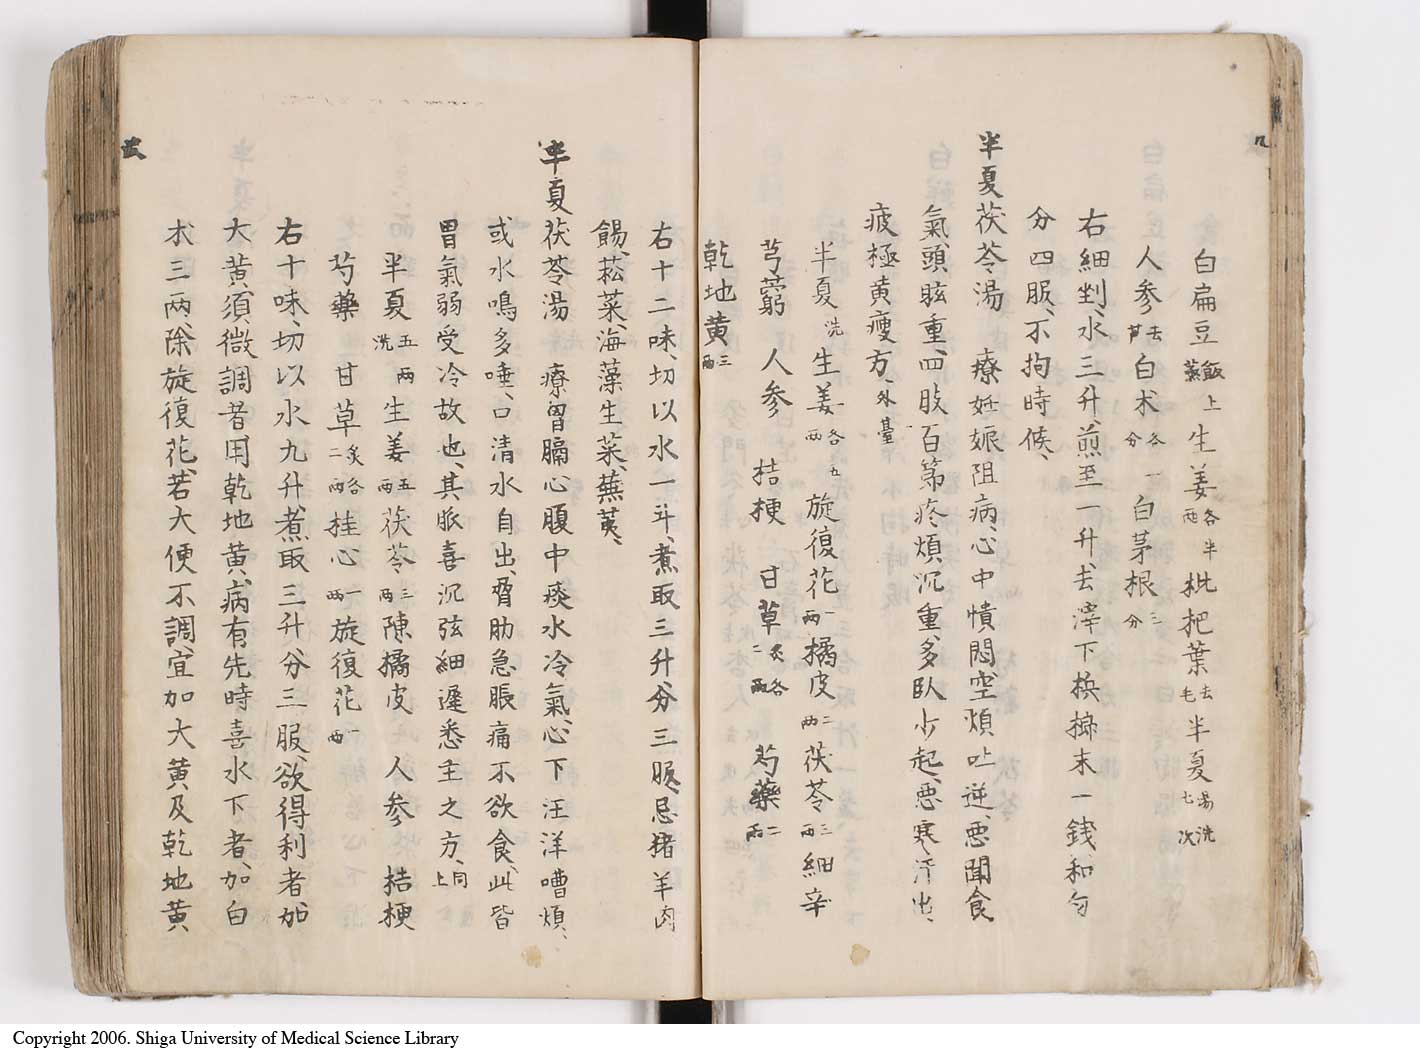 白扁豆飯上蒸 生姜各半両 枇杷葉去毛 半夏湯洗七次
人参去芦 白朮各一分 白茅根三分
右細剉、水三升、煎至一升、去滓下梹榔末一錢和匀
分四服、不拘時候、
半夏茯苓湯 療妊娠阻病、心中憒悶、空煩吐逆、悪聞食
氣、頭眩重、四肢百節疼煩沉重、多臥少起、悪寒汗出、
疲極黄瘦方、外臺
半夏洗 生姜各五両 旋復花一両 橘皮二両 茯苓三両 細辛
芎藭 人参 桔梗 甘草炙各二両 芍藥二両
乾地黄三両
右十二味、切以水一斗、煮取三升、分三服、忌猪羊肉
餳、菘菜、海藻生菜、蕪荑、
半夏茯苓湯 療胷膈心腹中痰水冷氣、心下汪洋嘈煩、
或水鳴多唾、口清水自出、脅肋急脹痛不欲食、此皆
胃氣弱受冷故也、其脈喜沉弦細遲悉主之方、同上
半夏五両洗 生姜五両 茯苓三両 陳橘皮 人参 桔梗
芍藥 甘草炙各二両 桂心一両 旋復花一両
右十味、切以水九升、煮取三升、分三服、欲得利者加
大黄、須微調者用乾地黄、病有先時喜水下者、加白
朮三両、除旋復花、若大便不調、宜加大黄及乾地黄
Copyright 2006. Shiga University of Medical Science Library